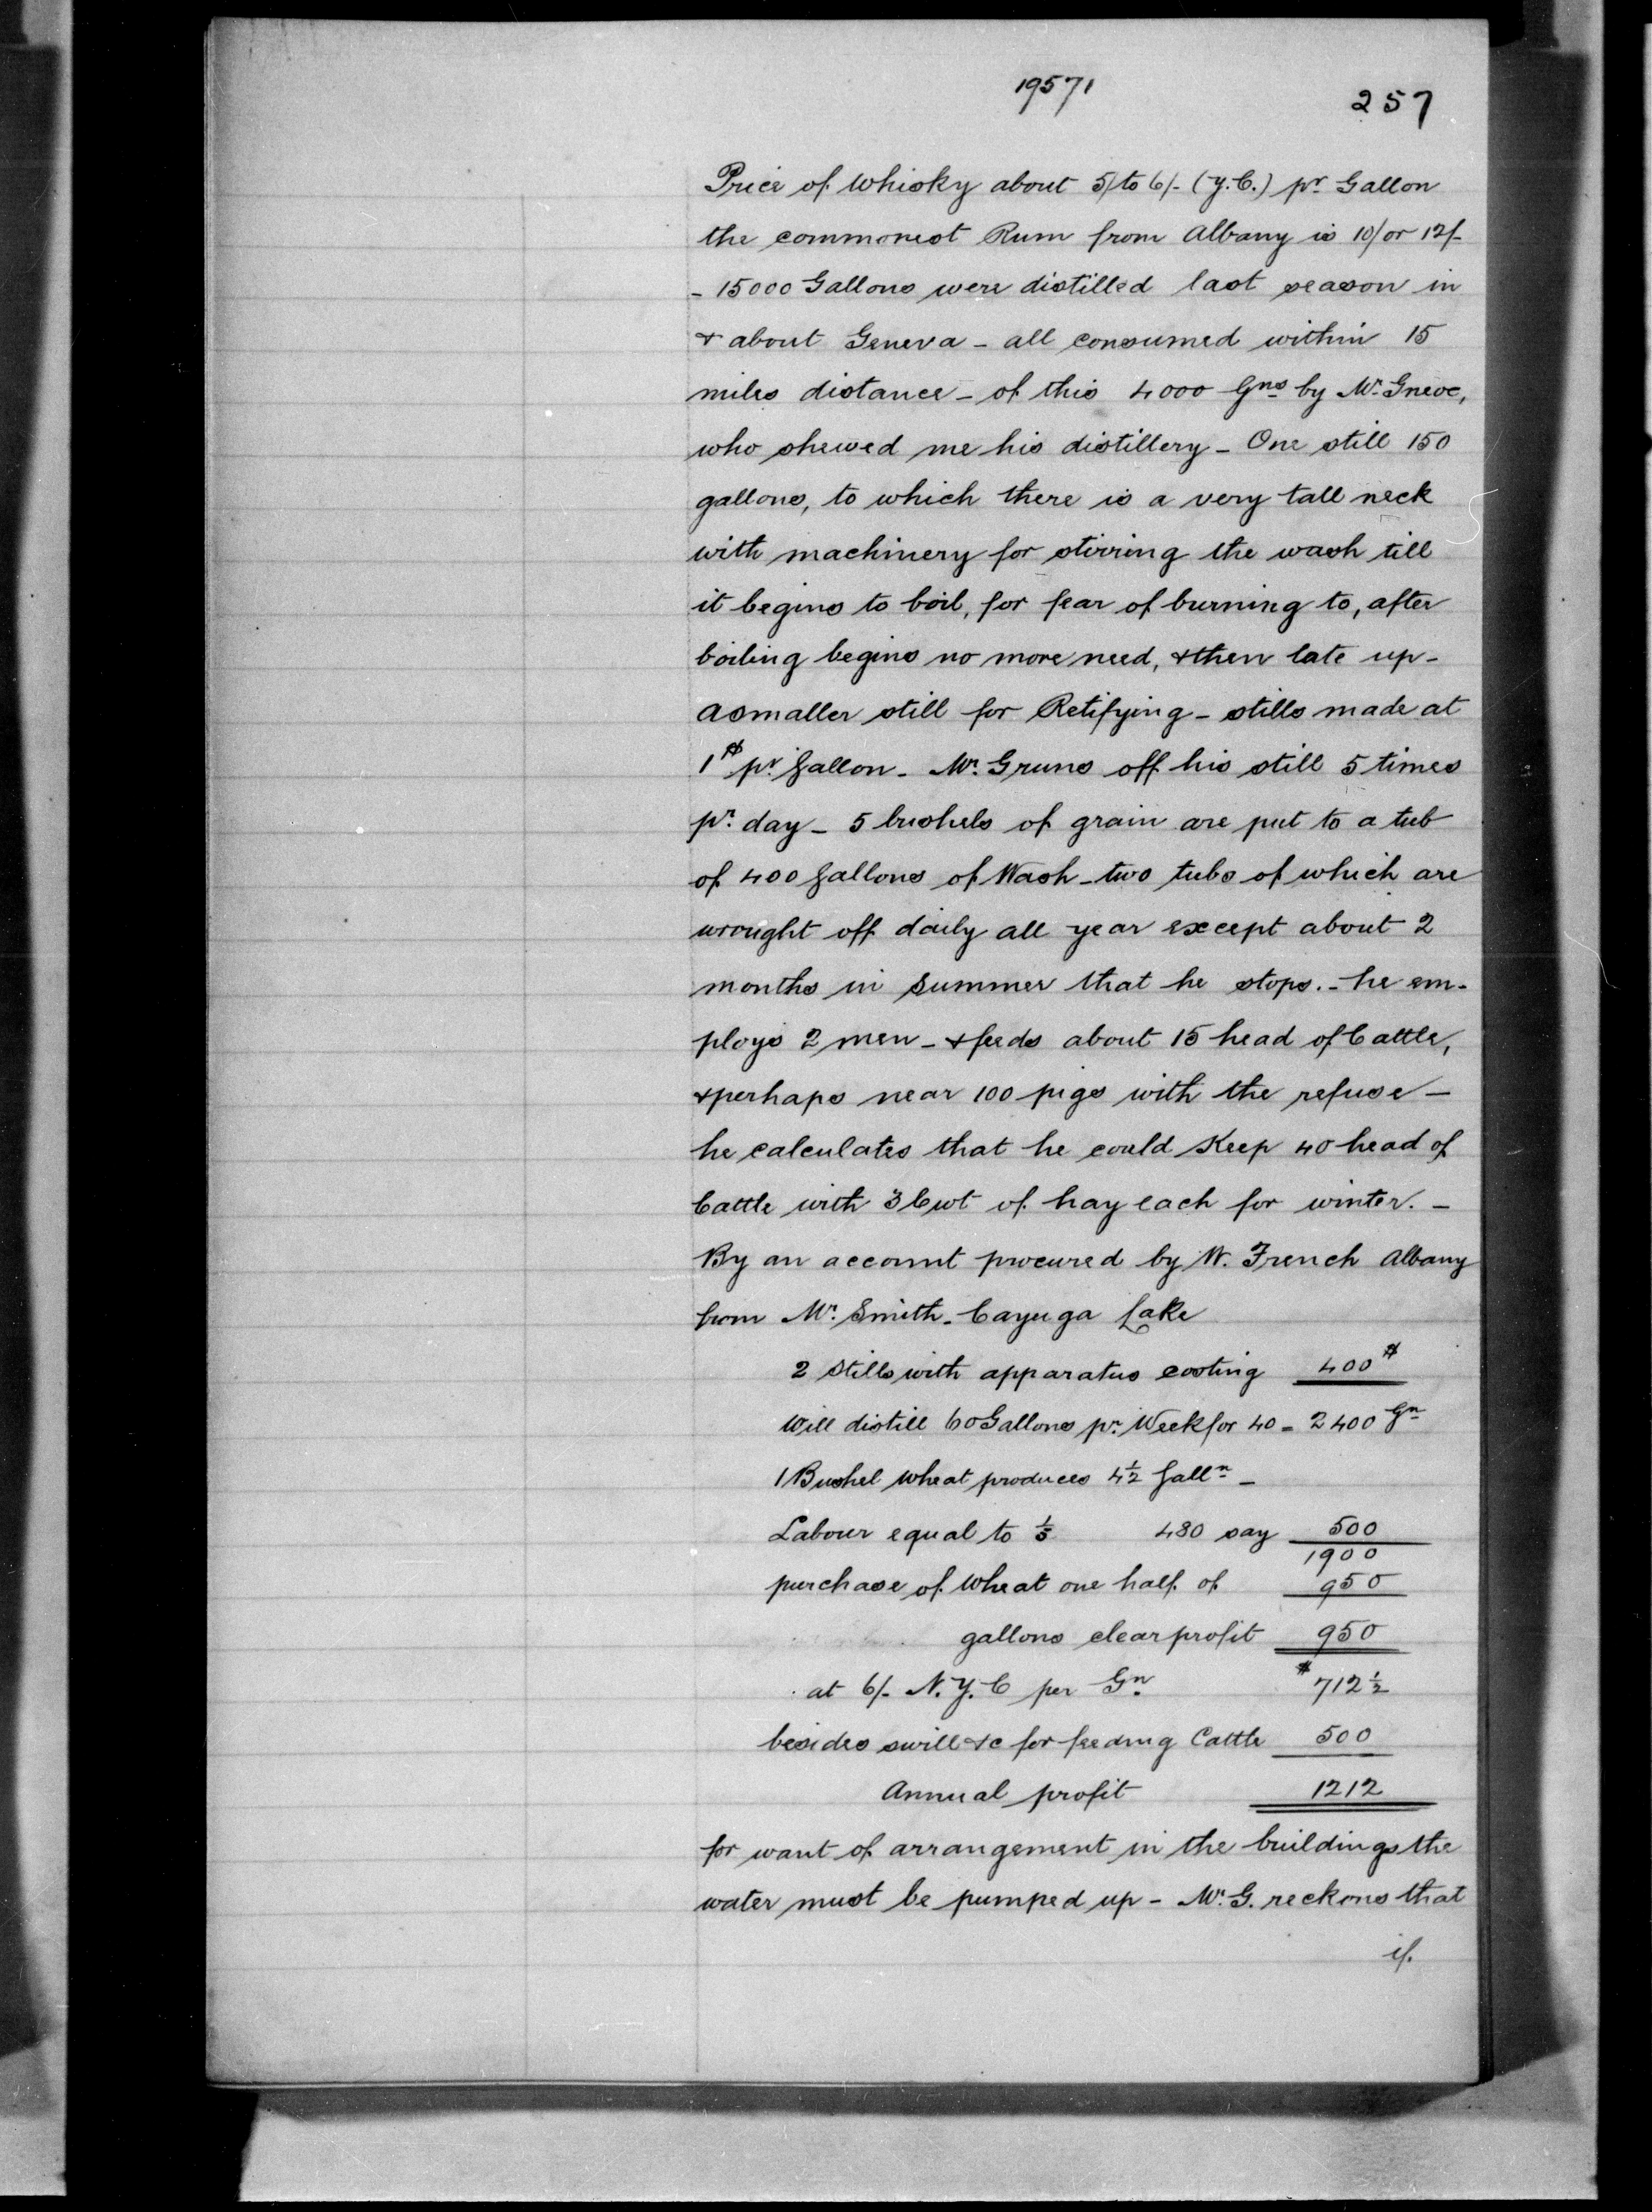 19571
257
Price of Whisky about 5/ to 6/- (Y.C.) pr Gallon
the commonest Rum from Albany is 10/ or 12/-
- 15000 Gallons were distilled last season in
& about Geneva - all consumed within 15
miles distance - of this 4000 Gns by Mr. Greve,
who shewed me his distillery - One still 150
gallons, to which there is a very tall neck
with machinery for stirring the wash till
it begins to boil, for fear of burning to, after
boiling begins no more need, & then late up -
a smaller still for Retifying - stills made at
1$ pr. Gallon - Mr. G runs off his still 5 times
pr. day - 5 bushels of grain are put to a tub
of 400 Gallons of Wash - two tubs of which are
wrought off daily all year except about 2
months in Summer that he stops. - he em-
ploys 2 men - & feeds about 15 head of Cattle,
& perhaps near 100 pigs with the refuse -
he calculates that he could Keep 40 head of
Cattle with 3 Cwt of hay each for winter. -
By an account procured by W. French Albany
from Mr. Smith - Cayuga Lake
2 Stills with apparatus costing 400$
Will distill 60 Gallons pr. Week for 40 = 2400 Gn
1 Bushel Wheat produces 4½ Galln -
Labour equal to ⅕ 480 say 500
1900
purchase of Wheat one half of 950
gallons clear profit 950
at 6/- N.Y.C per Gn. $712½
besides swill &c for feeding Cattle 500
Annual profit 1212
for want of arrangement in the buildings the
water must be pumped up - Mr. G. reckons that
if